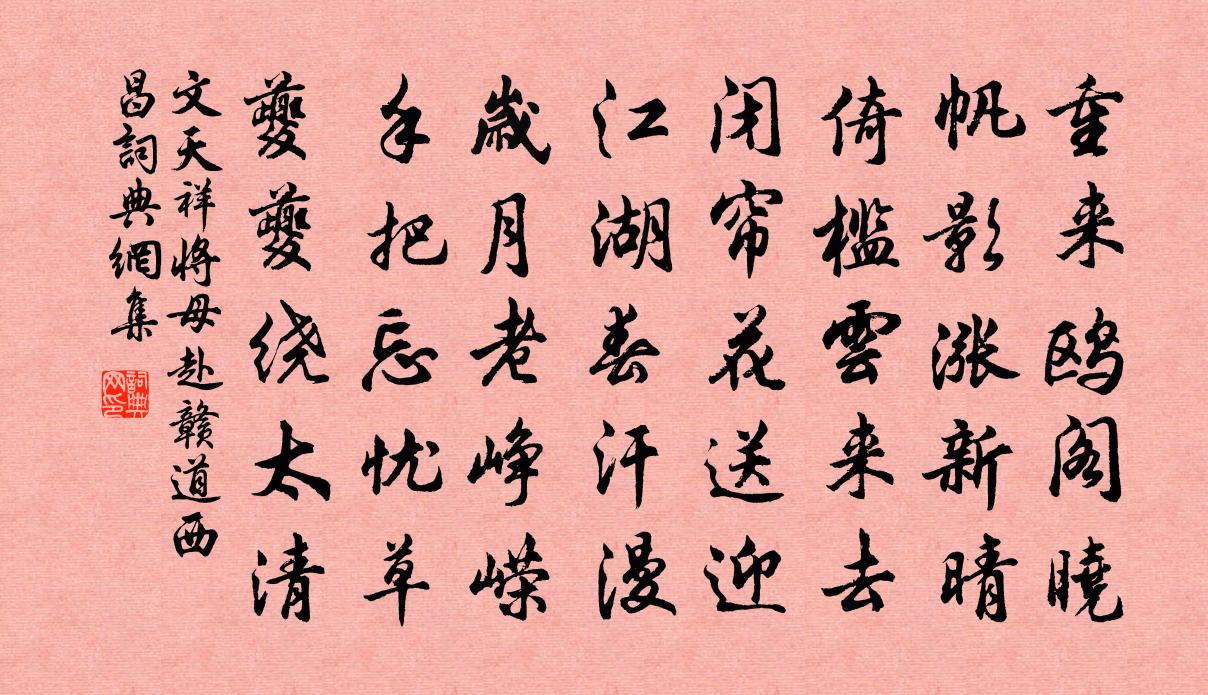 重来鸥阁曉
帆影涨新晴
倚槛雲来去
闭帘花送迎
江湖春汗漫
歲月老峥嵘
手把忘忧草
夔夔绕太清
文天祥将母赴赣道西
昌詞典網集
詞典网印